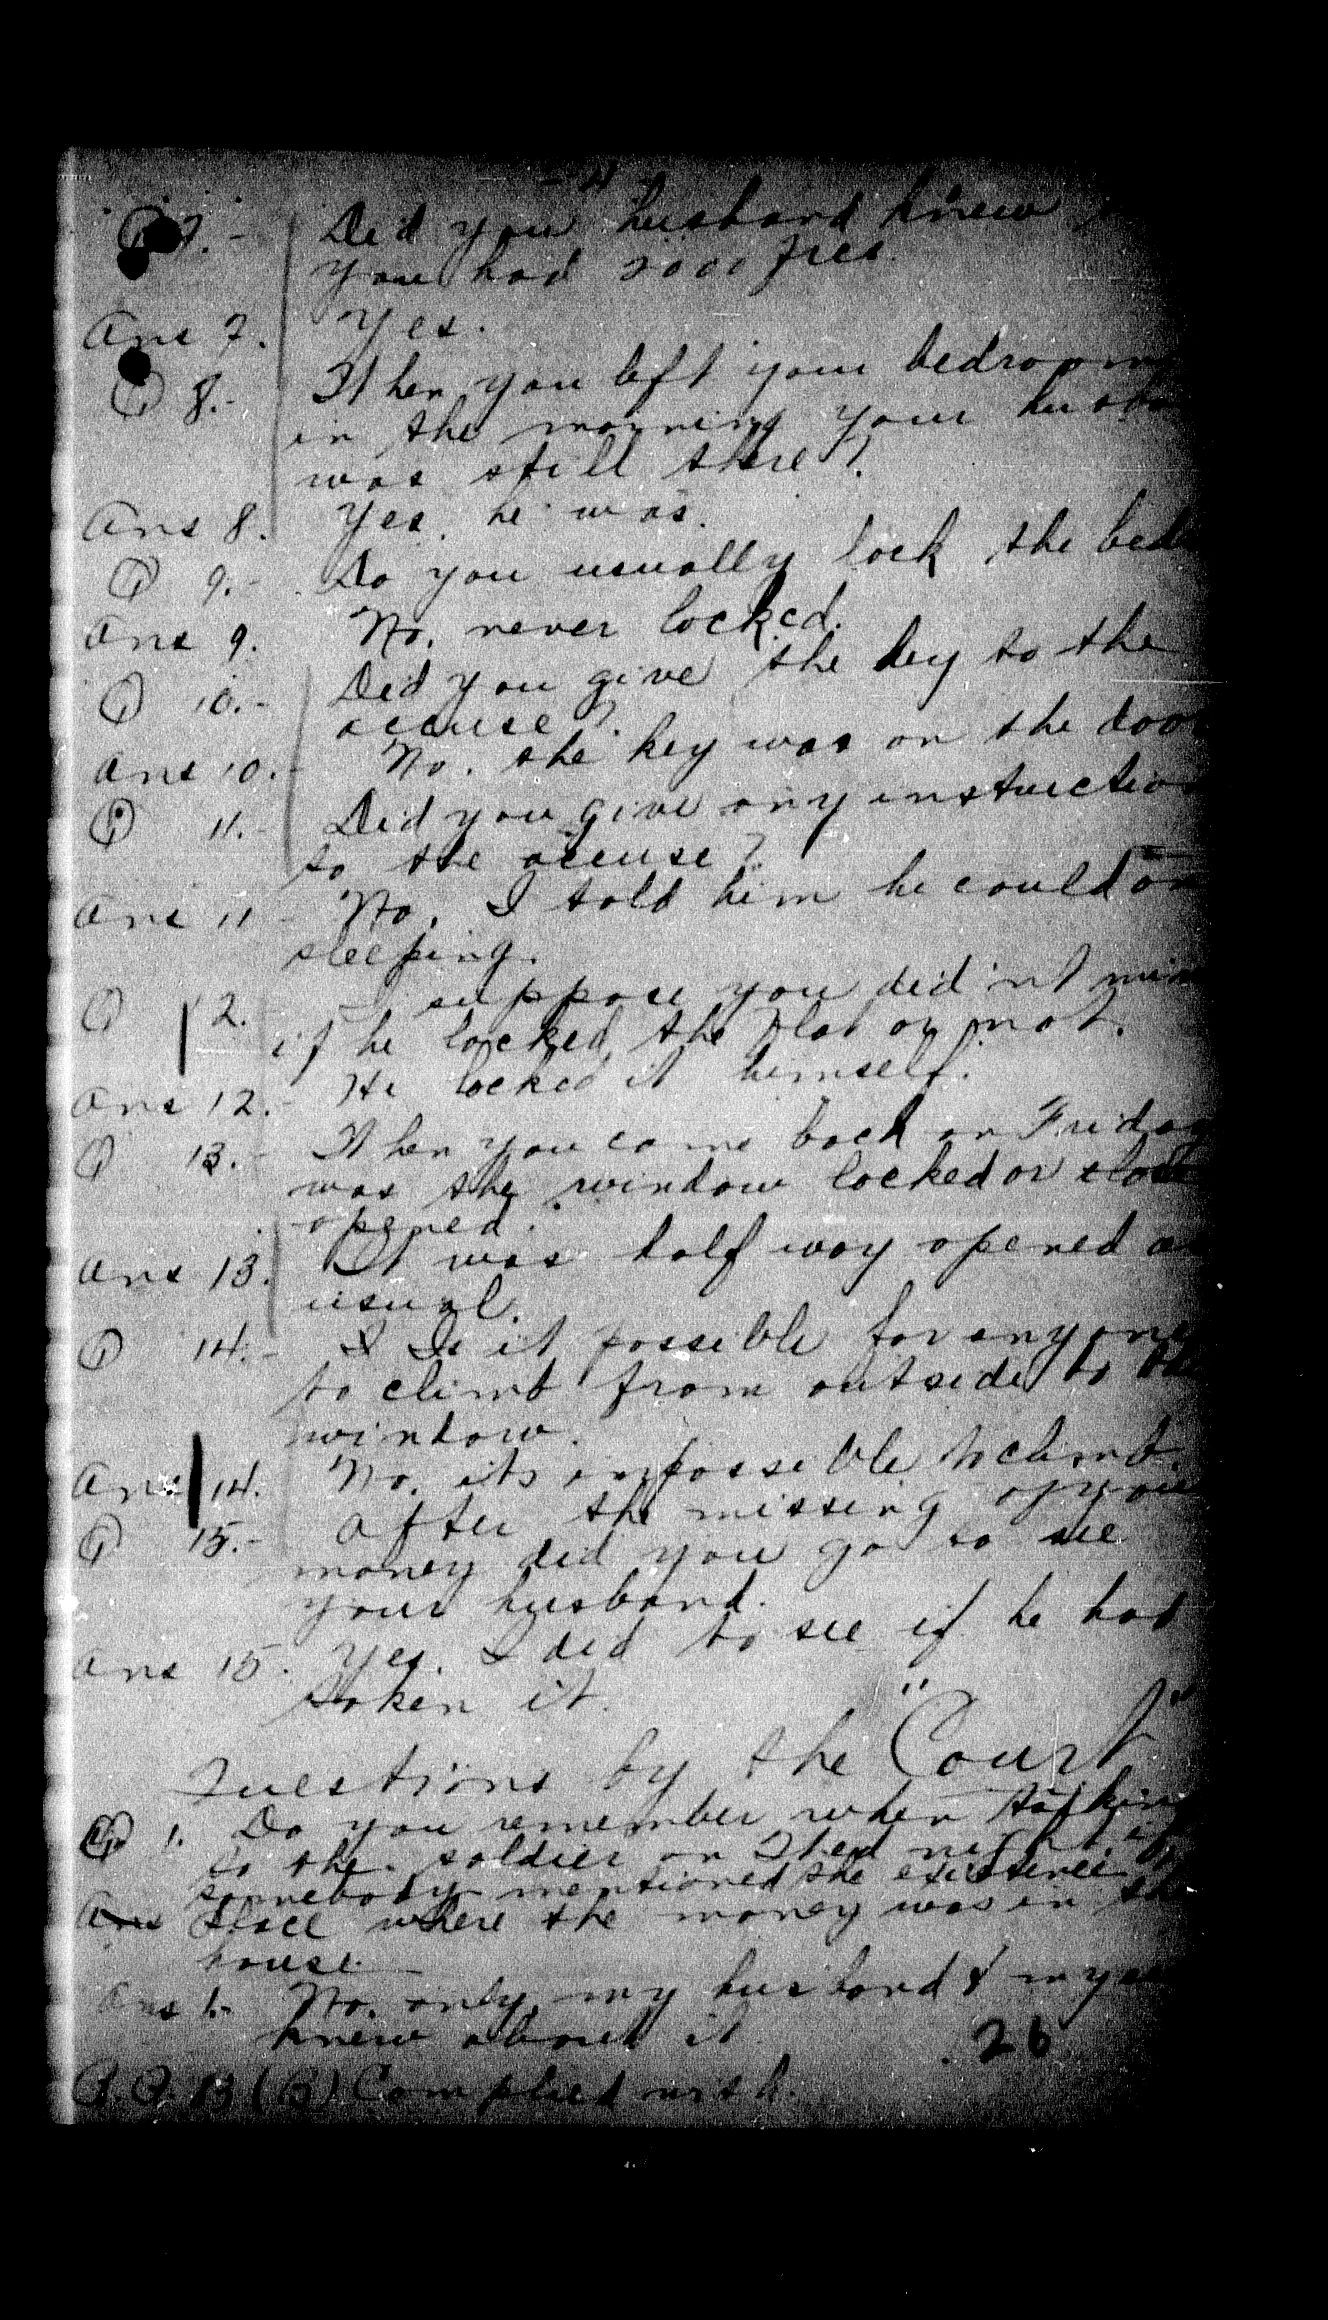 - 4 -
Q 7.- Did your husband knew
you had 2000 frcs.
Ans 7. Yes.
Q 8.- When you left your bedroom
in the morning your husba
was still there?
Ans 8. Yes, he was.
Q 9.- Do you usually lock the bed
Ans 9. No, never locked.
Q 10.- Did you give the key to the
accuse?
Ans 10.- No, the key was on the doo
Q 11.- Did you give any instruction
to the accuse?
Ans 11 - No, I told him he could
sleeping.
Q 12.- I suppose you did'nt min
if he locked the flat or not.
Ans 12.- He locked it himself.
Q 13.- When you came back on Friday
was the window locked or
opened.
Ans 13. It was half way opened as
usual.
Q 14.- I Is it possible for anyone
to climb from outside to the
window.
Ans 14. No, its impossible to climb.
Q 15.- After the missing of your
money did you go to see
your husband.
Ans 15. Yes. I did to see if he had
taken it.
Questions by the "Court"
Q 1. Do you remember when talking
to the soldier on Wed night if
somebody mentioned the existence
Ans place where the money was in the
house.
Ans 1.- No, only my husband & myse
knew about it.
26
R.P. 83 (B) Complied with.